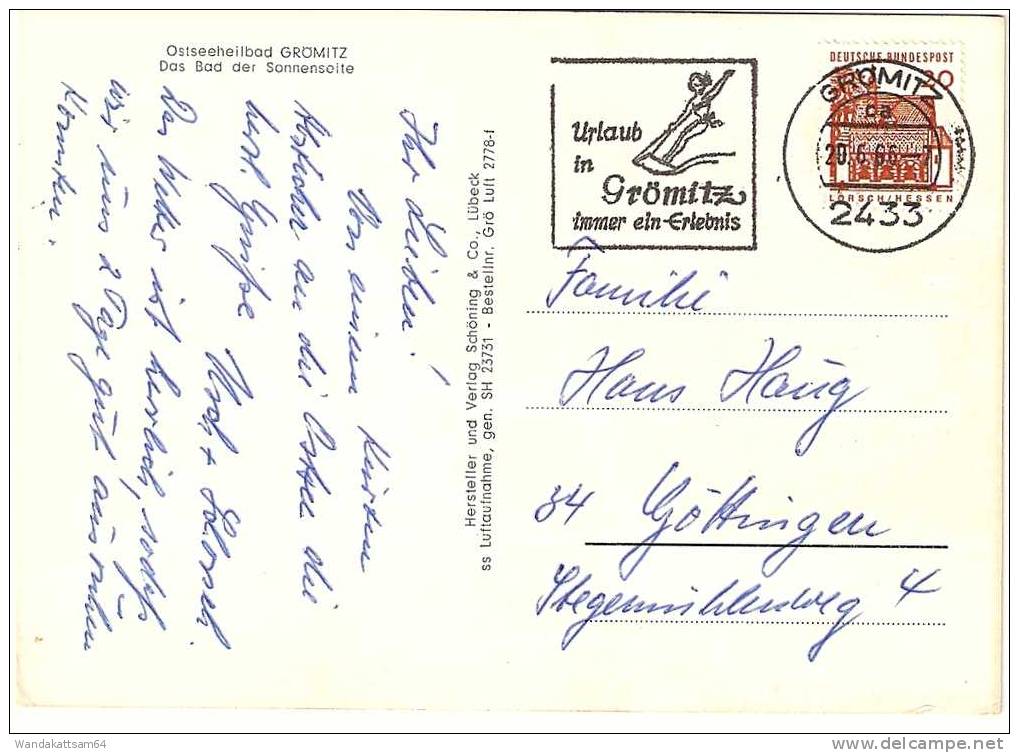 Ostseeheilbad GRÖMITZ
Das Bad der Sonnenseite
Ihr Lieben!
Von einem kurzen
Abstecher an die Ostsee die
herzl. Grüße
Das Wetter ist herrlich, sodaß
wir uns 2 Tage gut ausruhen
konnten.
Hersteller und Verlag Schöning & Co., Lübeck
ss Luftaufnahme, gen. SH 23731 - Bestellnr. Grö Luft 2778-f
Urlaub
in
Grömitz
immer ein-Erlebnis
GRÖMITZ
2433
DEUTSCHE BUNDESPOST
20
LORSCH/HESSEN
Familie
Hans Haug
34 Göttingen
Stegemühlenweg 4
Wandakattsam64
delcampe.net